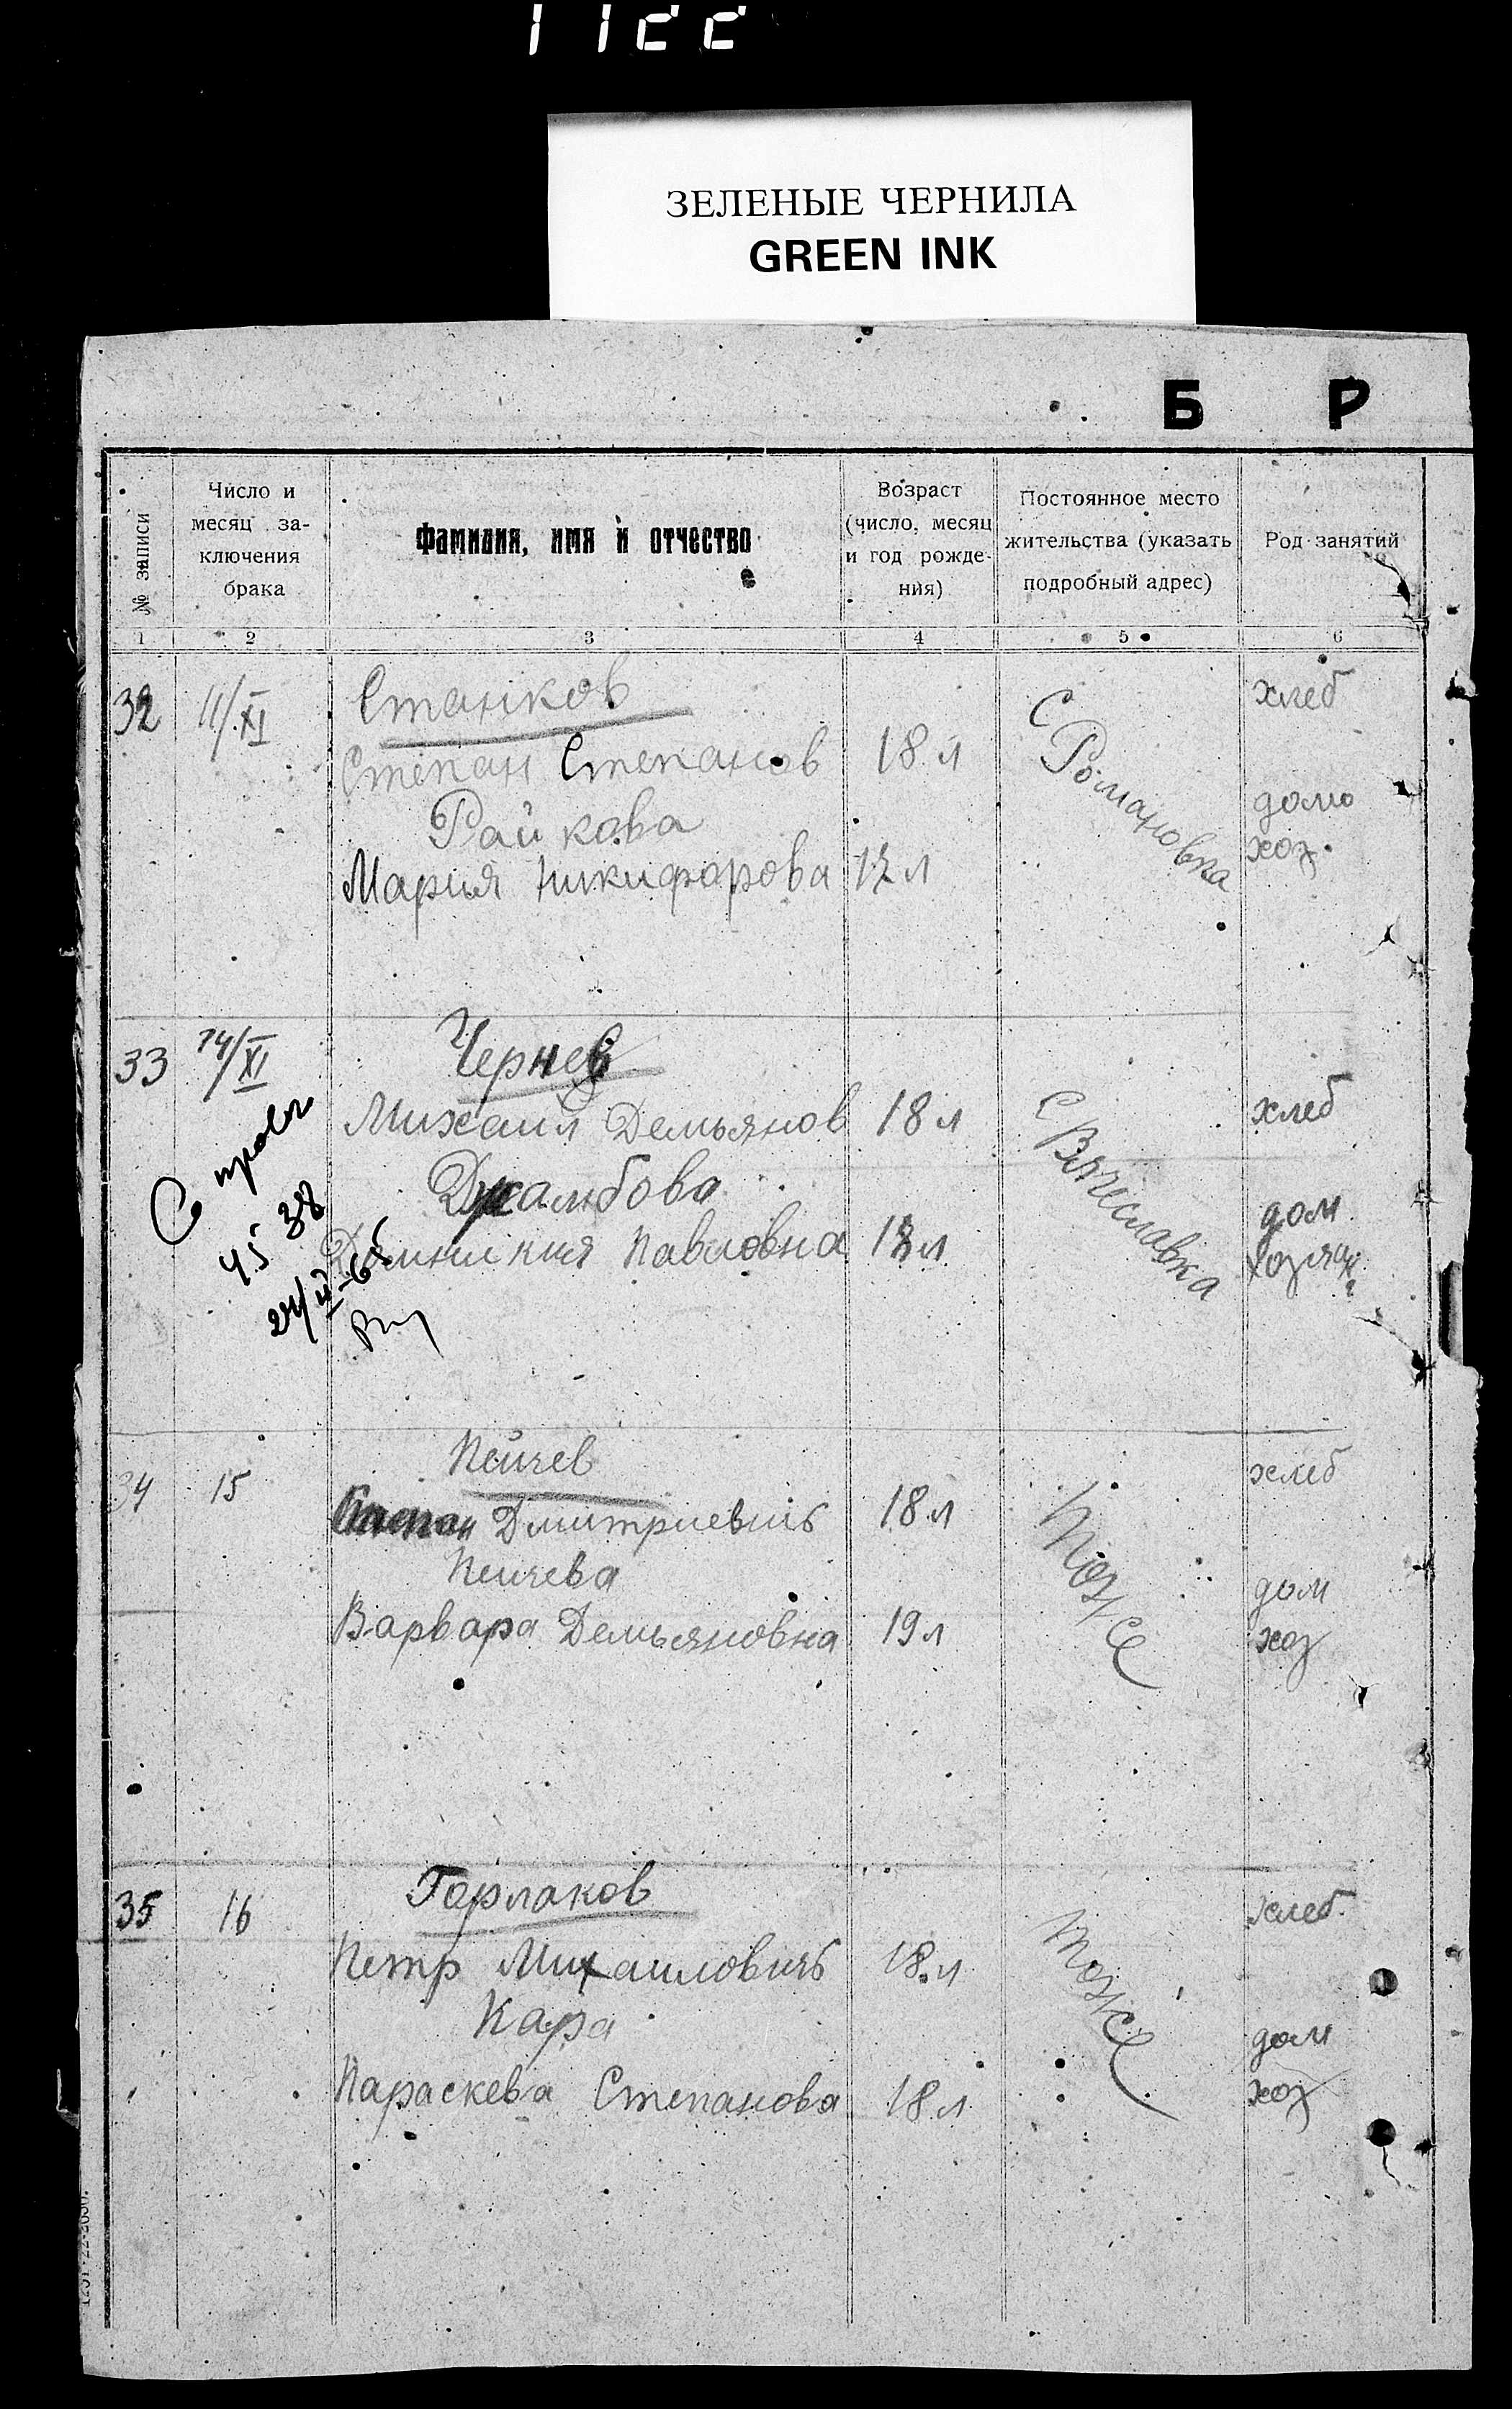 ЗЕЛЕНЫЕ ЧЕРНИЛА
GREEN INK
Б Р
№ записи
Число и месяц за-
ключения
брака
Фамилия, имя и отчество
Возраст
(число, месяц
и год рожде-
ния)
Постоянное место
жительства (указать
подробный адрес)
Род занятий
1 2 3 4 5 6
32 11/XI Станков хлеб
Степан Степанов 18 л с Романовка
Райкова домо
Мария Никифорова л хоз.
33 14/XI Чернев
Михаил Демьянов 18 л с Вячеславка хлеб
Джамбова дом
Павловна 18 л хозяй
С
45 38
24/
34 15 Пейчев хлеб
Степан Дмитриевич 18 л тоже
Пейчева дом
Варвара Демьяновна 19 л хоз
35 16 Гарлаков хлеб.
Петр Михаилович 18 л тоже
Кара дом
Параскева Степанова 18 л хоз